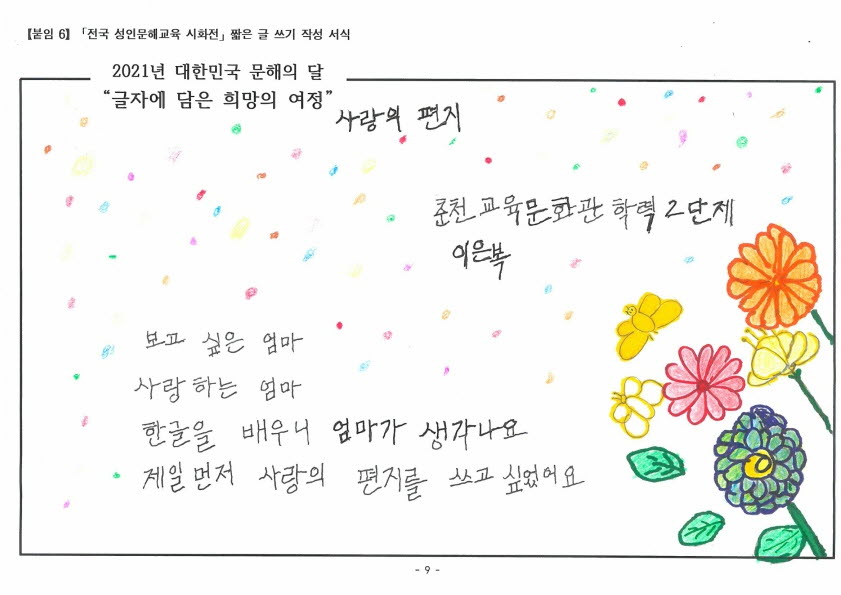 【붙임 6】 「전국 성인문해교육 시화전」 짧은 글 쓰기 작성 서식
2021년 대한민국 문해의 달
“글자에 담은 희망의 여정”
사랑의 편지
춘천교육문화관 학력 2단계
이은복
보고 싶은 엄마
사랑하는 엄마
한글을 배우니 엄마가 생각나요
제일먼저 사랑의 편지를 쓰고 싶었어요
- 9 -